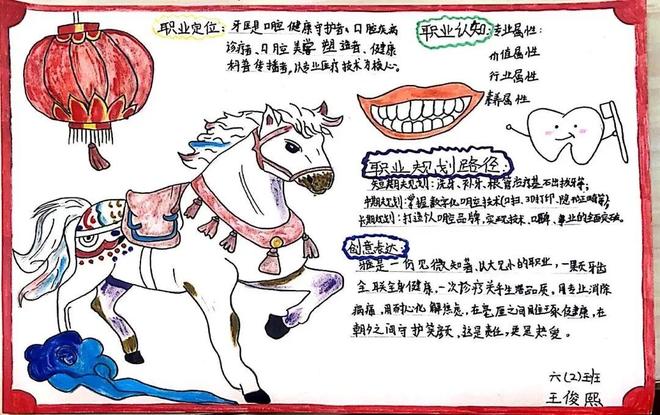 职业定位：牙医是口腔健康守护者、口腔疾病
诊疗者、口腔美学塑造者、健康
科普传播者，以专业医疗技术为核心。
职业认知：专业属性：
价值属性
行业属性
素养属性
职业规划路径：
短期规划：洗牙、补牙、根管治疗基石出拔牙等；
中期规划：掌握数字化口腔技术(口扫、3D打印、隐形正畸等)；
长期规划：打造个人口腔品牌，实现技术、口碑、事业的全面突破。
创意表达：
牙医是一份见微知著、以大见小的职业，一颗牙齿
全联全身健康，一次诊疗关乎生活品质。用专业消除
病痛，用耐心化解焦虑，在毫厘之间
健康，在
朝夕之间守护笑颜，这是责任，更是热爱。
六(2)班
王俊熙